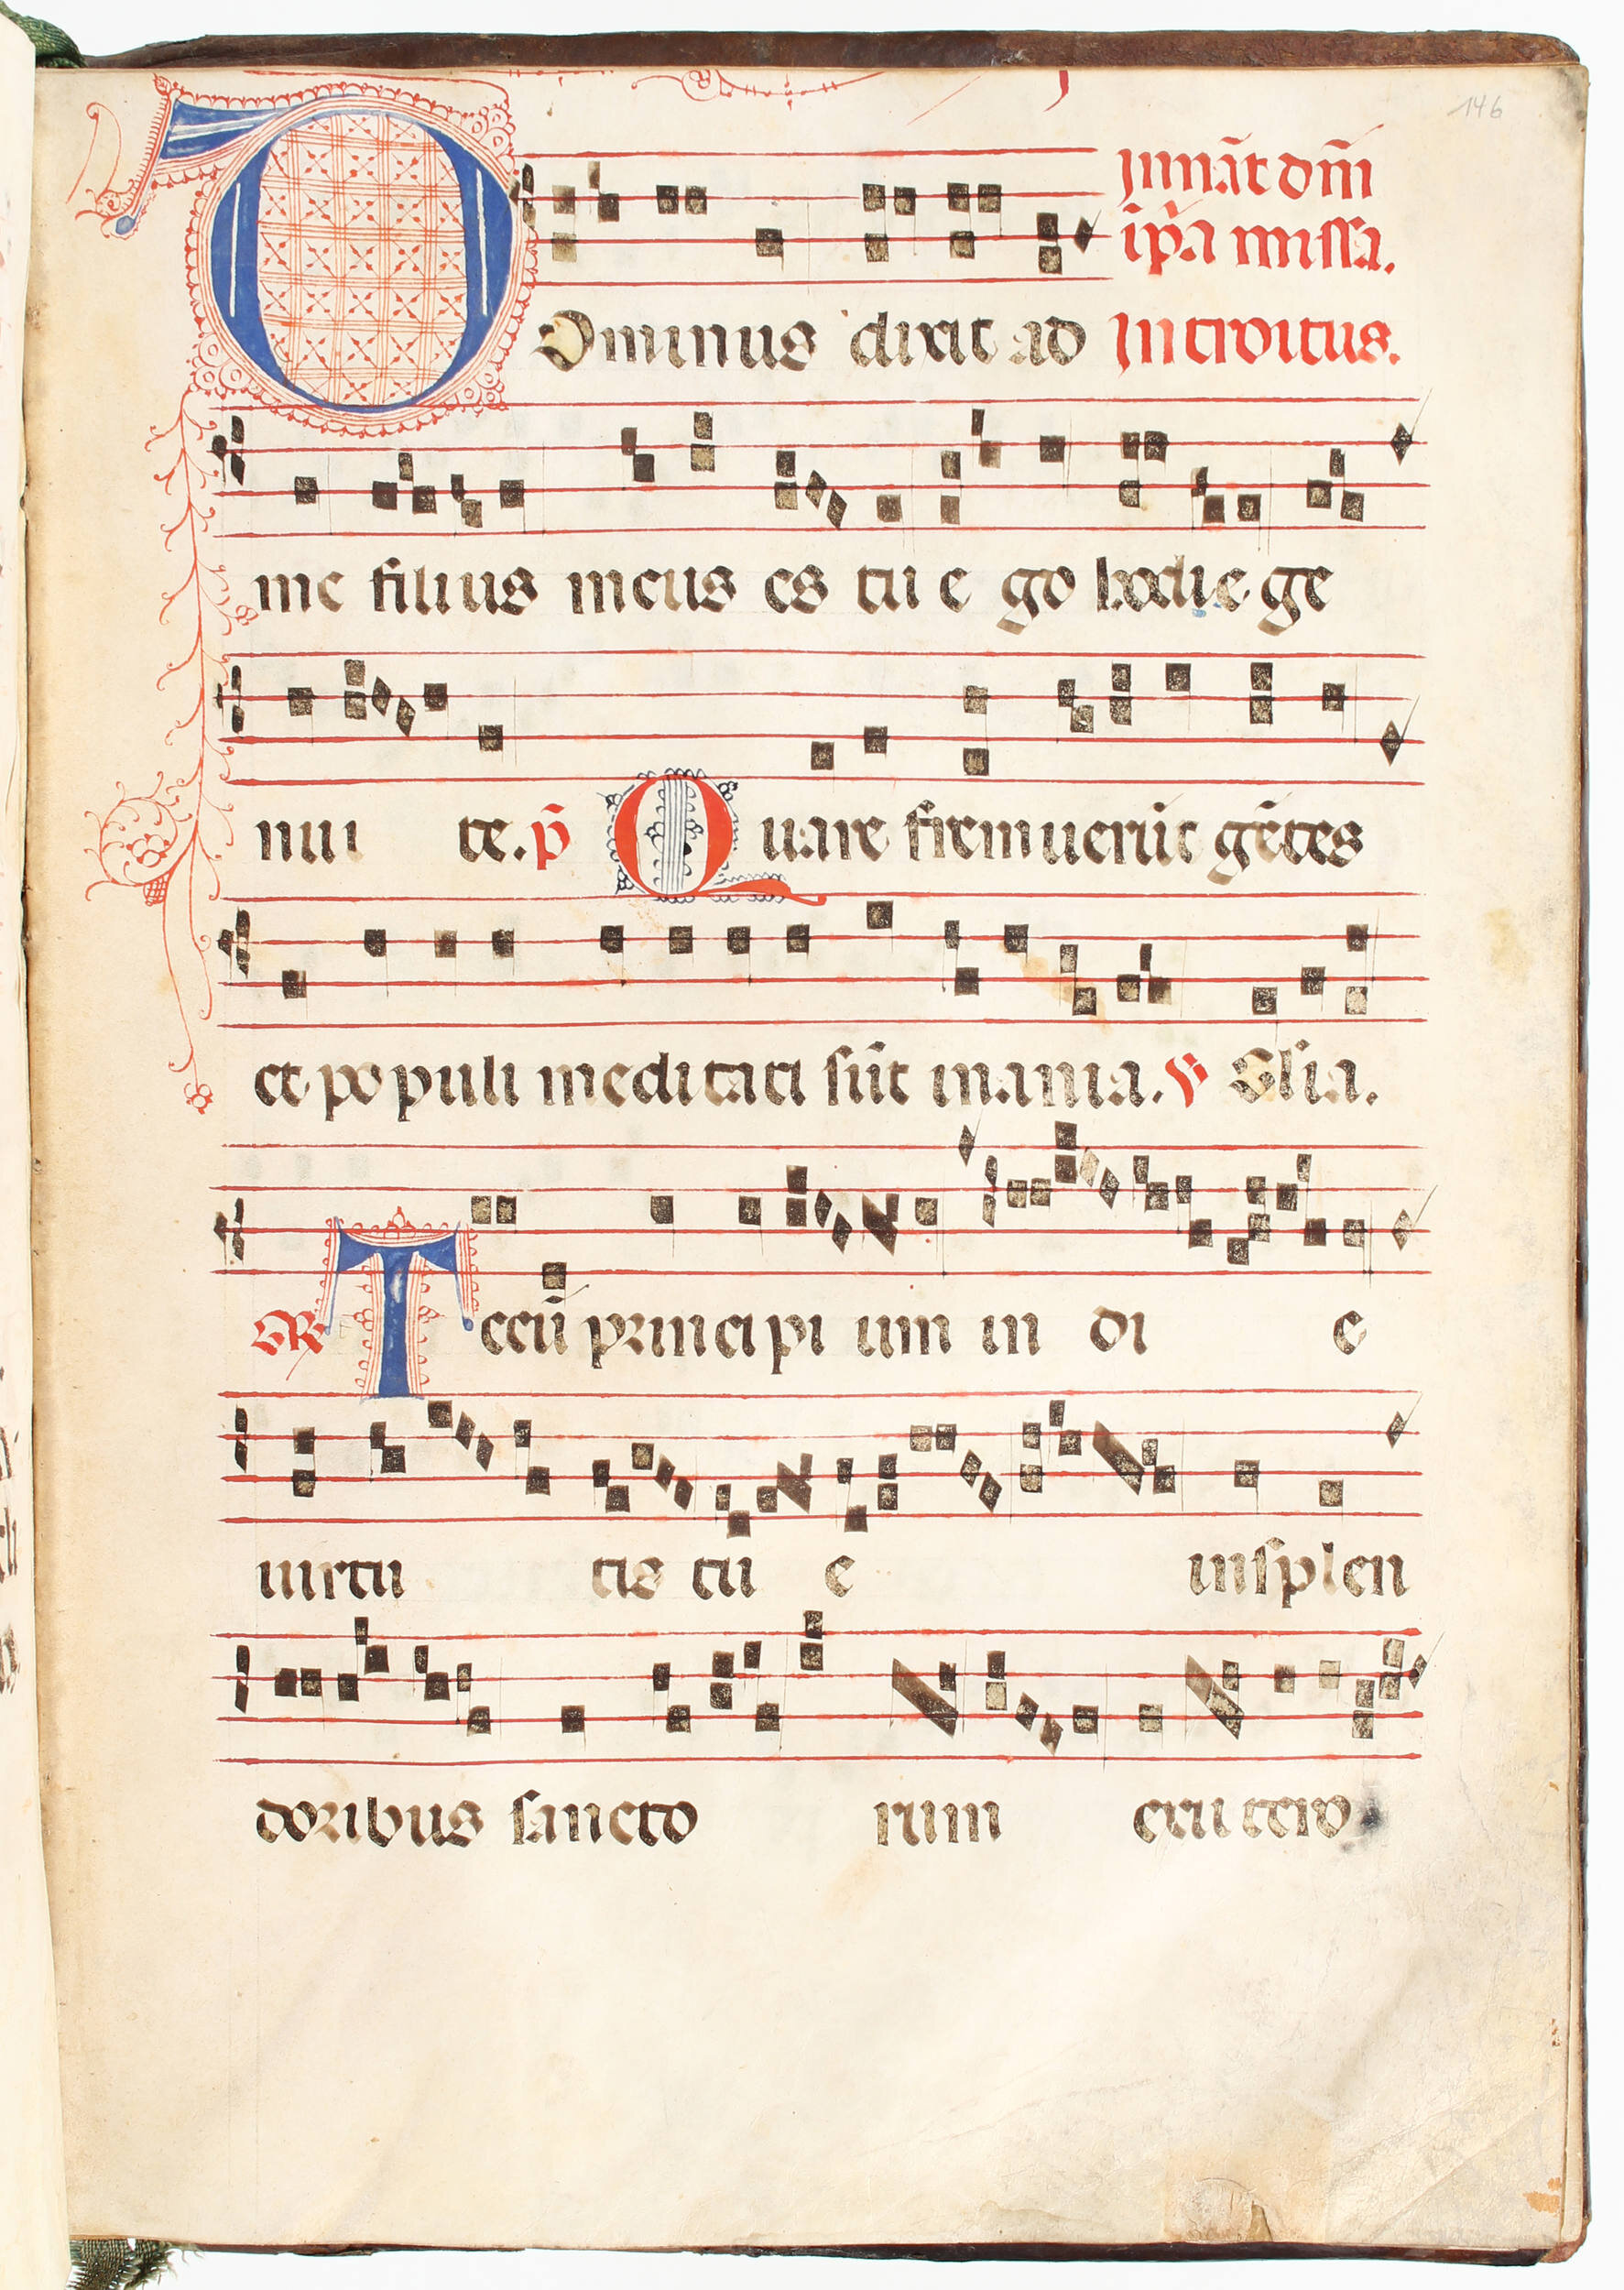 146
In nāt dn̄i
i pᵃa missa.
Dominus dixit ad Introitus.
me filius meus es tu e go hodie ge
nui te. p̄ Quare fremuerūt gētes
et populi meditati sūt inania. V Glia.
GR Tecū principi um in di e
uirtu tis tu e insplen
doribus sancto rum exu tero